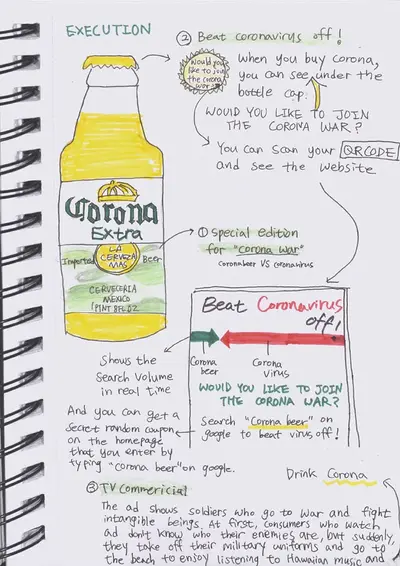 EXECUTION
② Beat coronavirus off!
When you buy Corona,
you can see under the
bottle cap.
WOULD YOU LIKE TO JOIN
THE CORONA WAR?
Would you
like to join
the corona
war?
You can scan your QRCODE
and see the website.
Corona
Extra
LA
CERVEZA
MAS
Imported Beer
CERVECERIA
MEXICO
1PINT 8FL OZ
① Special edition
for "corona war"
Coronabeer VS coronavirus
Beat Coronavirus
off!
Corona
beer
Corona
virus
WOULD YOU LIKE TO JOIN
THE CORONA WAR?
Search "Corona beer" on
google to beat virus off!
Shows the
Search volume
in real time
And you can get a
secret random coupon
on the homepage
that you enter by
typing "corona beer" on google.
Drink Corona
③ TV Commericial
The ad shows soldiers who go to war and fight
intangible beings. At first, consumers who watch
ad don't know who their enemies are, but suddenly,
they take off their military uniforms and go to
the beach to enjoy listening to Hawaiian music and